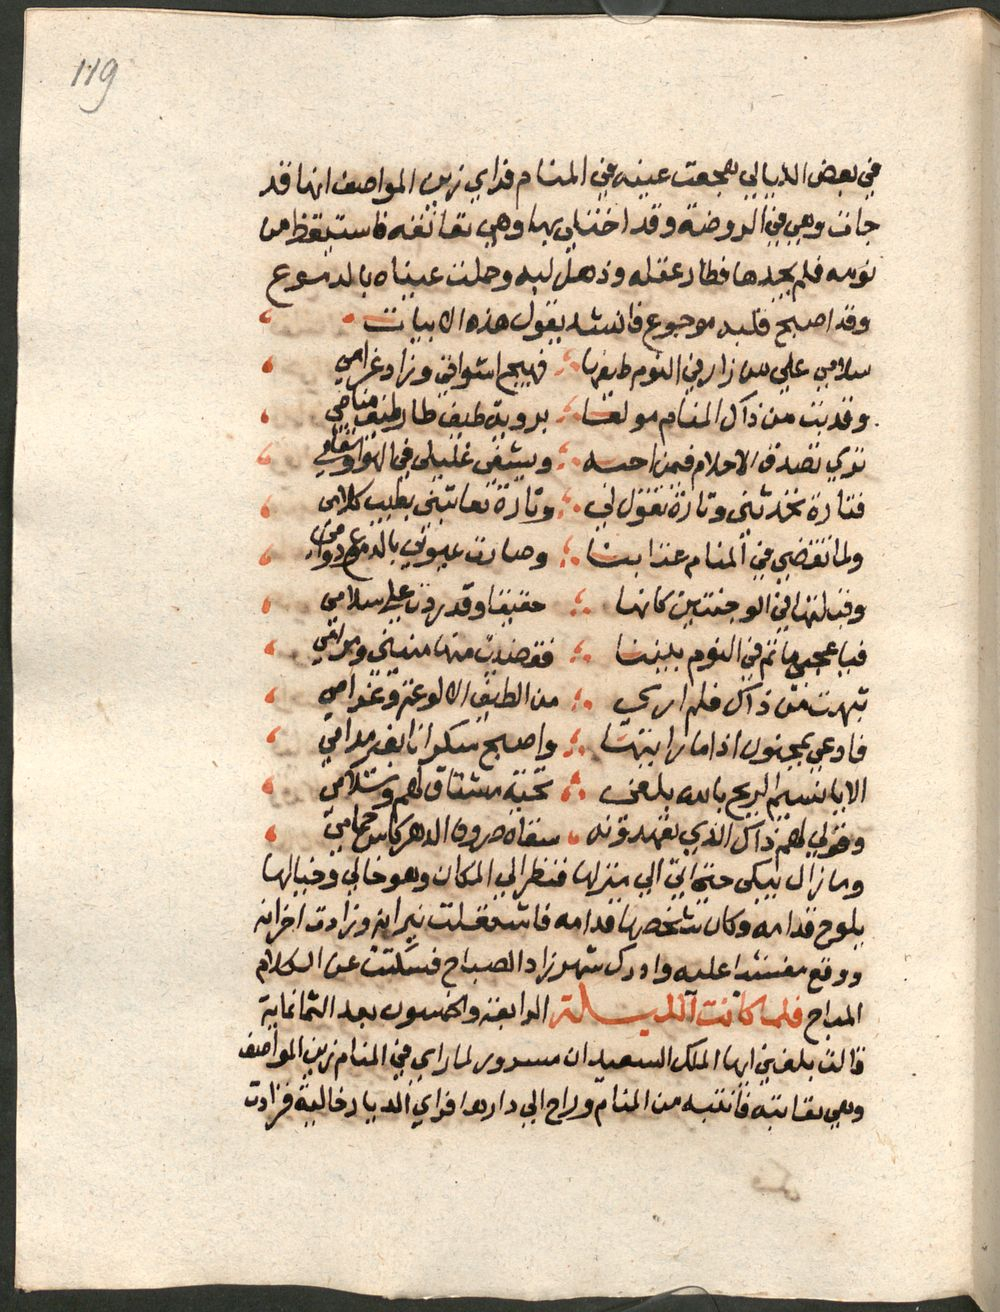 119
في بعض الليالي هجعت عينه في المنام فراي زين المواصف انها قد
جات وهي في الروضة وقد اختلي بها وهي تعانقه فاستيقظ من
نومه فلم يجدها فطار عقله وذهل لبه وهملت عيناه بالدموع
وقد اصبح قلبه موجوع فانشد يقول هذه الابيات
سلامي علي من زار في النوم طيفها فهيج اشواقي وزاد غرامي
وقد بت من ذاك المنام مولعا بروية طيف طار طيف منامي
تري تصدق الاحلام فيمن احبه ويشفي غليلي في الهوا وسقامي
فتارة تحدثني وتارة تقول لي وتارة تعاتبني بطيب كلامي
ولما تقضي في المنام عتابنا وصارت عيوني بالدموع دوامي
وقبلتها في الوجنتين كانها حقيقا وقد ردت علي سلامي
فيا عجبي ما تم في النوم بيننا فقضيت منها منيتي ومرامي
نبهت من ذاك فلم اري من الطيف الا لوعتي وغرامي
فادعي بمجنون اذا ما رايتها واصبح سكرانا بغير مدامي
الا يا نسيم الريح بالله بلغي تحية مشتاق لهم وسلامي
وقولي لهم ذاك الذي تعهدونه سقاه صروف الدهر كاس حمامي
وما زال يبكي حتي اتي الي منزلها فنظر الي المكان وهو خالي وخيالها
يلوح قدامه وكان شخصها قدامه فاشتعلت نيرانه وزادت احزانه
ووقع مغشيا عليه وادرك شهرزاد الصباح فسكتت عن الكلام
المباح فلما كانت الليلة الرابعة والخمسون بعد الثمانماية
قالت بلغني ايها الملك السعيد ان مسرور لما راي في المنام زين المواصف
وهي تعانقه فانتبه من المنام وراح الي دارها فراي الديار خالية فزادت